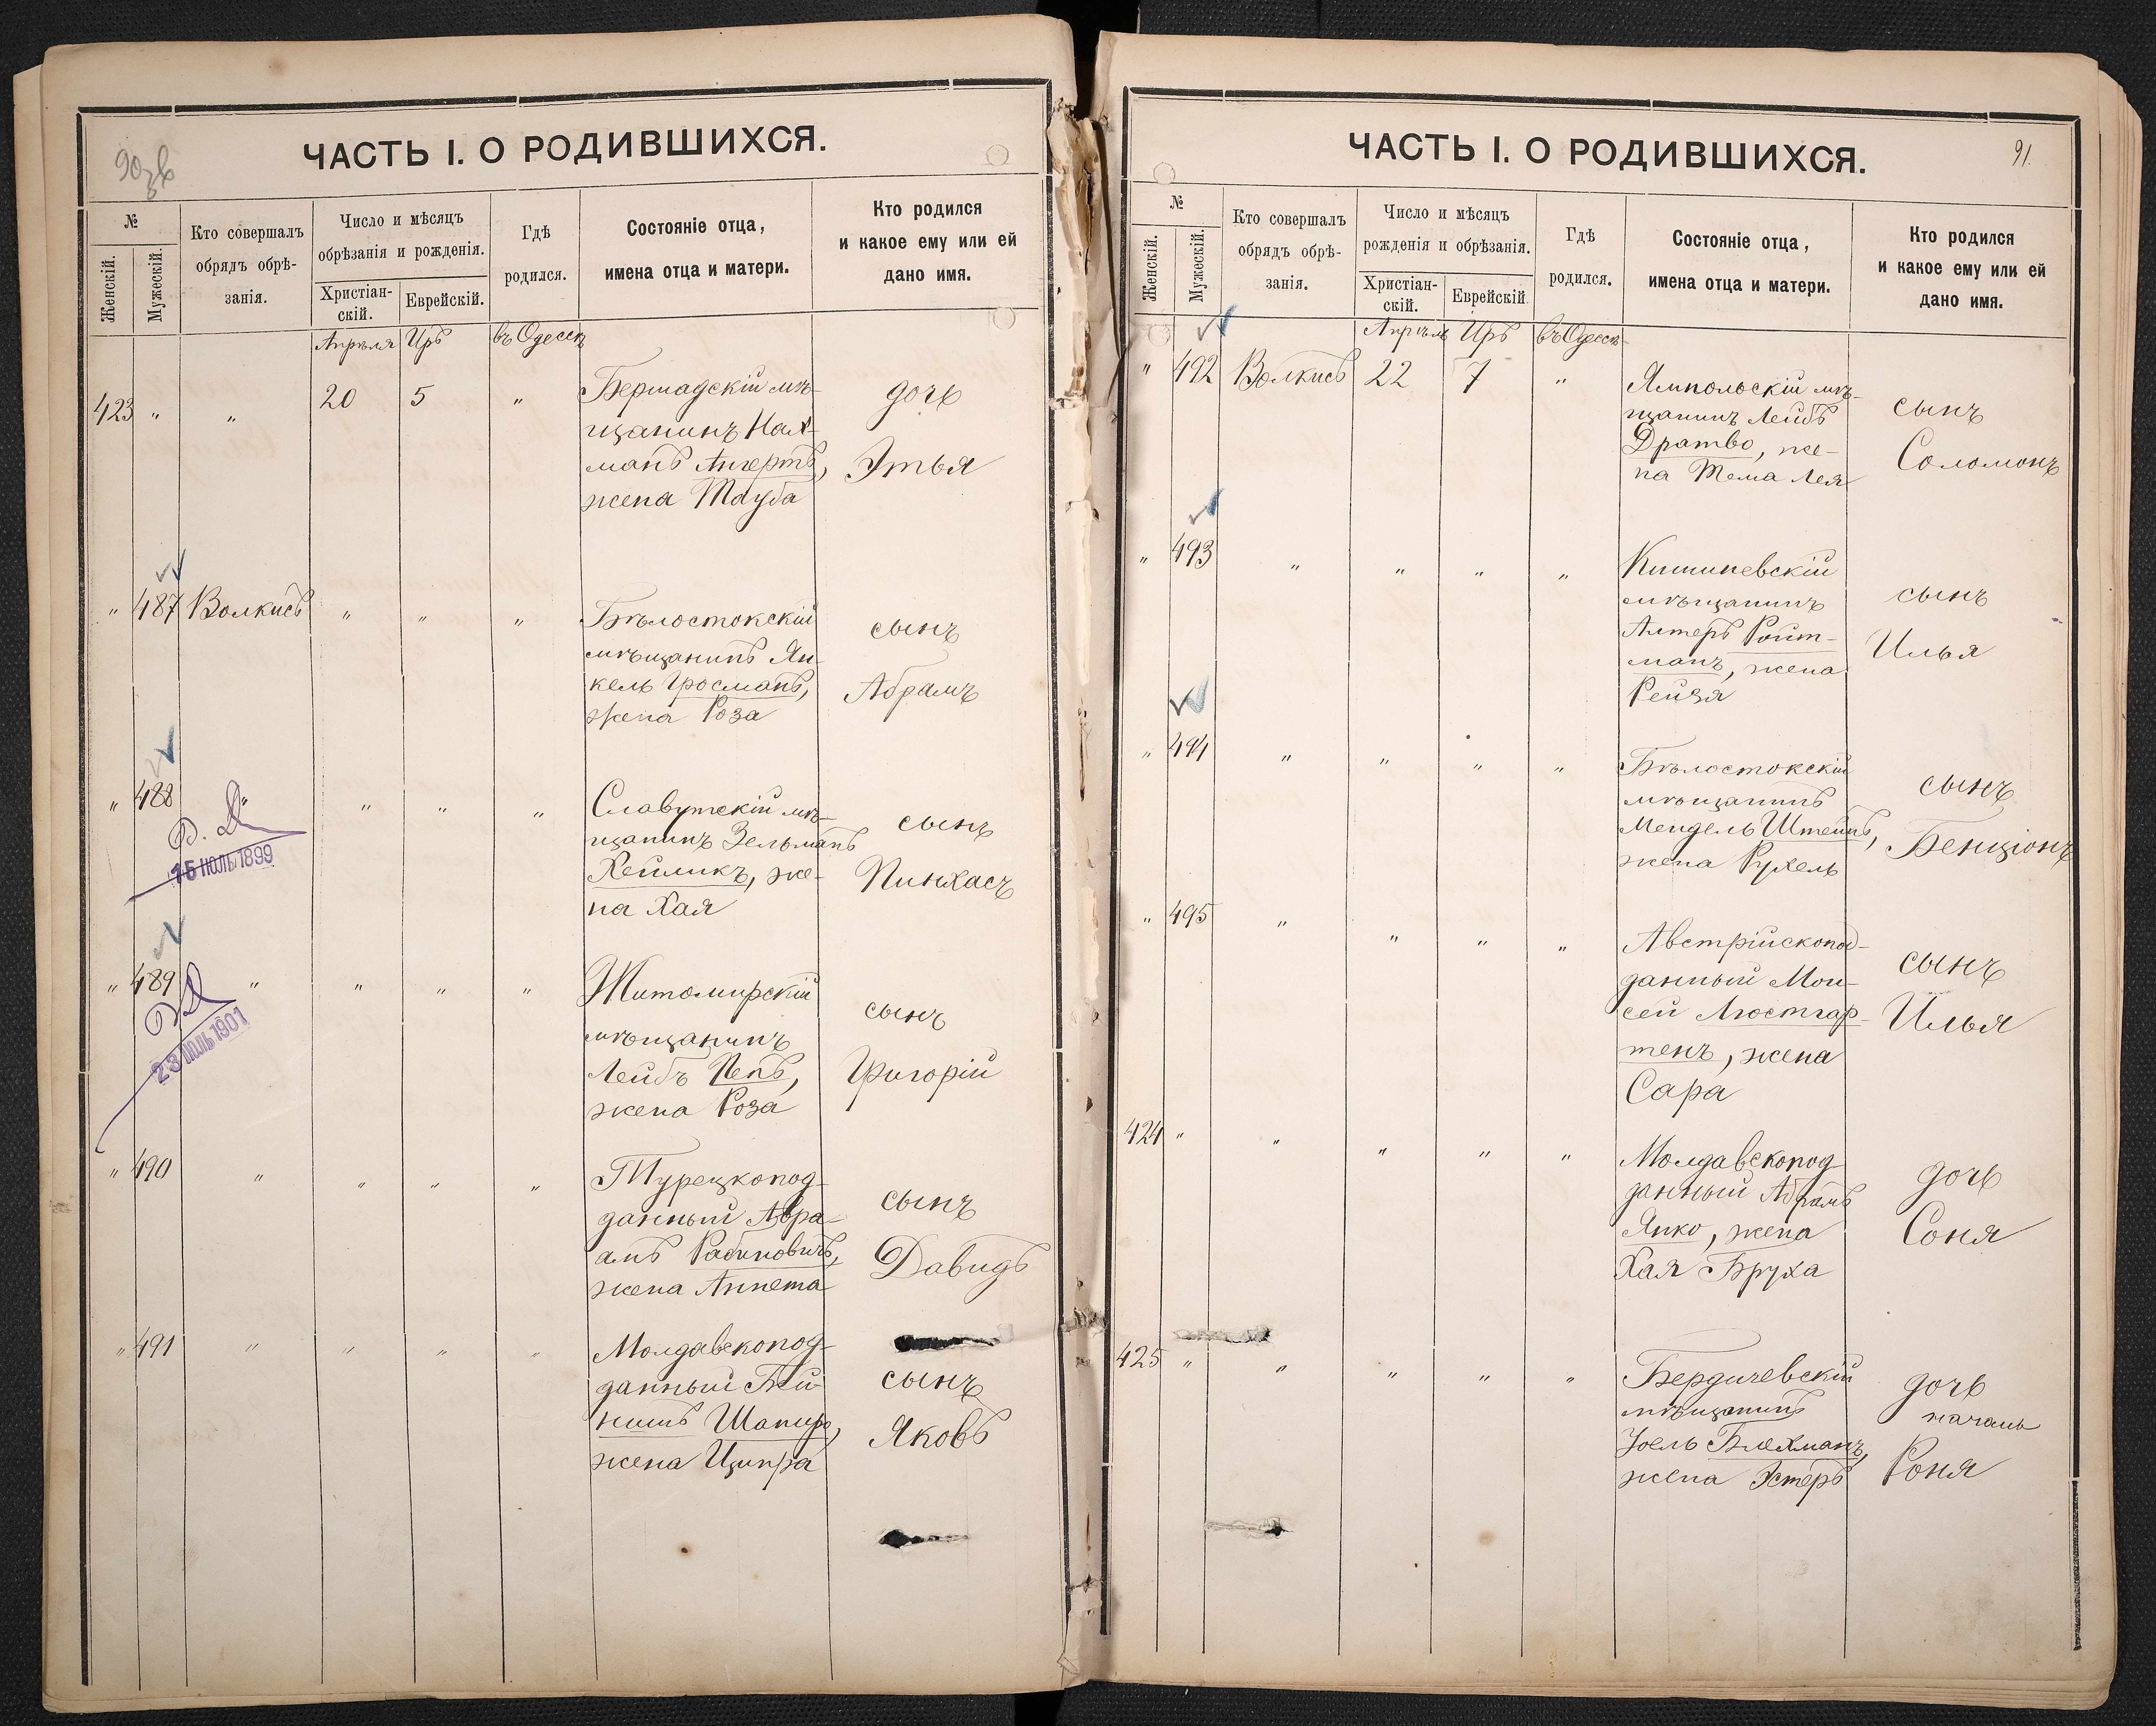 90 об
ЧАСТЬ I. О РОДИВШИХСЯ.
№
Женскій.
Мужескій.
Кто совершалъ
обрядъ обрѣ-
занія.
Число и мѣсяцъ
обрѣзанія и рожденія.
Христіан-
скій.
Еврейскій.
Гдѣ
родился.
Состояніе отца,
имена отца и матери.
Кто родился
и какое ему или ей
дано имя.
Апрѣля Иръ въ Одессѣ
423 " " 20 5 "
Бершадскій мѣ-
щанинъ Нах-
манъ Ангертъ,
жена Тауба
дочь
Этья
" 487 Волкисъ " " "
Бѣлостокскій
мѣщанинъ Ян-
кель Гросманъ,
жена Роза
сынъ
Абрамъ
" 488 " " " "
15 ІЮЛЬ 1899
Славутскій мѣ-
щанинъ Зельманъ
Хейликъ, же-
на Хая
сынъ
Пинхасъ
" 489 " " " "
23 ІЮЛЬ 1901
Житомирскій
мѣщанинъ
Лейбъ Пенъ,
жена Роза
сынъ
Григорій
" 490 " " " "
Турецкопод-
данный Авра-
амъ Рабиновичъ,
жена Аннета
сынъ
Давидъ
" 491 " " " "
Молдавскопод-
данный Бей-
нишъ Шапиро,
жена Ципра
сынъ
Яковъ
91.
ЧАСТЬ I. О РОДИВШИХСЯ.
№
Женскій.
Мужескій.
Кто совершалъ
обрядъ обрѣ-
занія.
Число и мѣсяцъ
рожденія и обрѣзанія.
Христіан-
скій.
Еврейскій
Гдѣ
родился.
Состояніе отца,
имена отца и матери.
Кто родился
и какое ему или ей
дано имя.
Апрѣля Иръ въ Одессѣ
" 492 Волкисъ 22 7 "
Ямпольскій мѣ-
щанинъ Лейбъ
Дратво, же-
на Тема Лея
сынъ
Соломонъ
" 493 " " " "
Кишиневскій
мѣщанинъ
Алтеръ Ройт-
манъ, жена
Рейзя
сынъ
Илья
" 494 " " " "
Бѣлостокскій
мѣщанинъ
Мендель Штейнъ,
жена Рухель
сынъ
Бенціонъ
" 495 " " " "
Австрійскопод-
данный Мои-
сей Люстгар-
тенъ, жена
Сара
сынъ
Илья
424 " " " " "
Молдавскопод
данный Абрамъ
Янко, жена
Хая Бруха
дочь
Соня
425 " " " " "
Бердичевскій
мѣщанинъ
Іоель Блехманъ,
жена Эстеръ
дочь
Роня